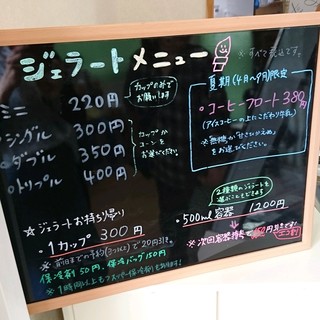 ジェラートメニュー
※すべて税込です。
ミニ 220円
カップのみで
お願いします
シングル 300円
ダブル 350円
トリプル 400円
カップか
コーンを
お選びください。
夏期(4月~9月)限定
・コーヒーフロート 380円
(アイスコーヒーの上にこだわり牛乳)
をお選びください。
☆ジェラートお持ち帰り
・1カップ 300円
※前日までの予約で20円引き。
保冷剤50円、保冷バッグ150円
2種類のジェラートを
選ぶこともできます
・500ml容器 1200円
※次回容器持参で